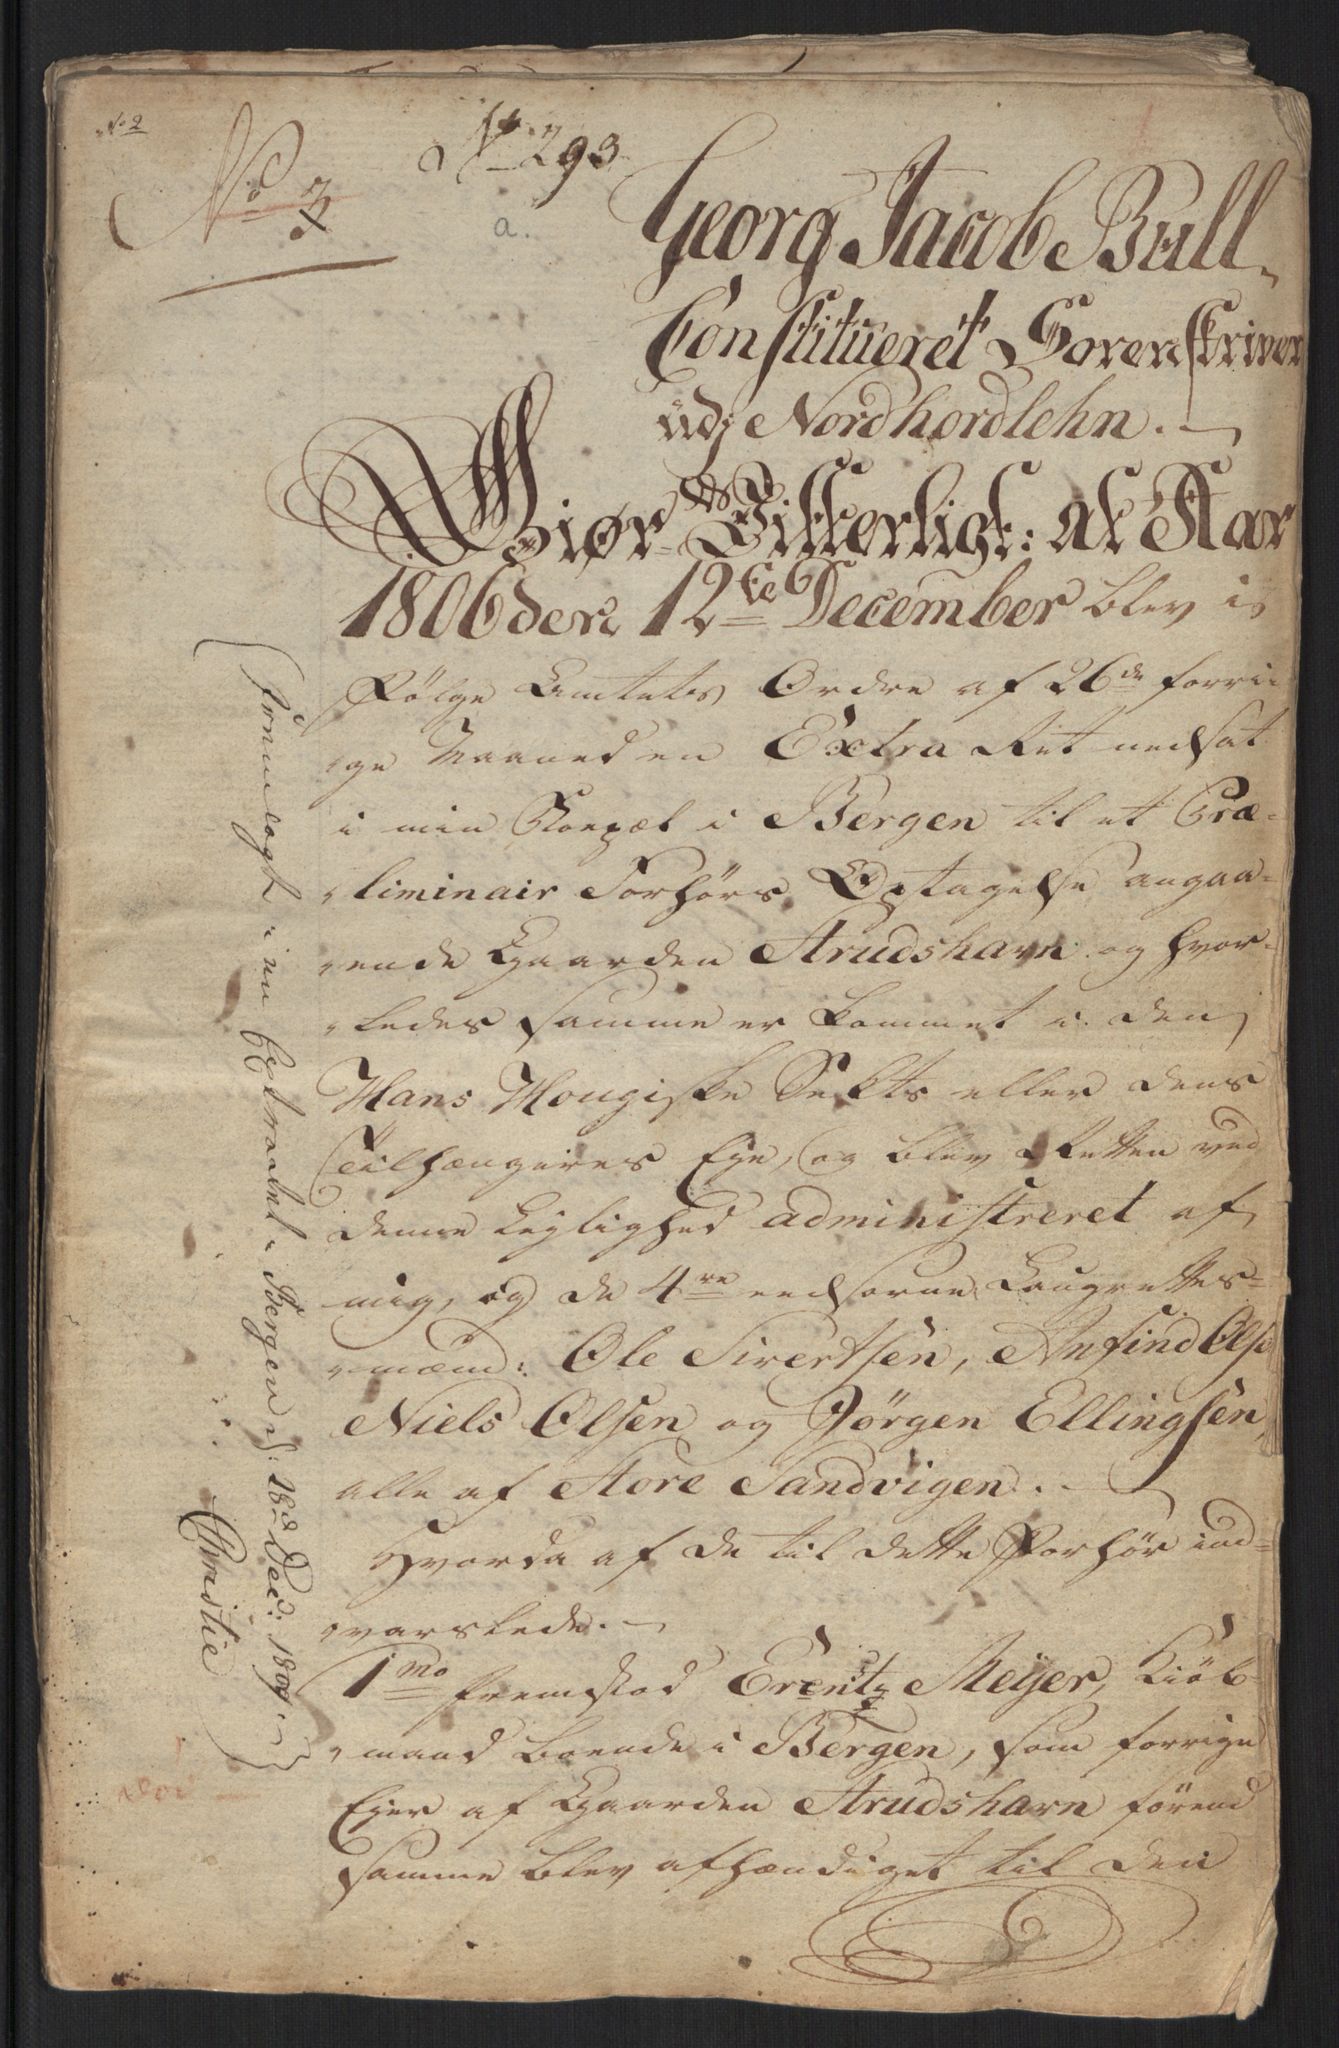 No 2
No 3
No 293
a.
Georg Jacob Bull
Constitueret Sorenskriver
udj Nordhordlehn. —
Giør Vitterligt: at Aar
1806 den 12te December blev i
Følge Amtets Ordre af 26de forri-
ge Maaned en Extra Ret nedsat
i min Stoepæl i Bergen til et Præ-
liminair Forhørs Optagelse angaa-
ende Gaarden Strudshavn og hvor-
ledes samme er kommet i den
Hans Hougiske Sekts eller dens
Tilhængeres Eje, og blev Retten ved
denne Lejlighed administreret af
mig, og de 4re eedsorne Laugrettes-
mænd: Ole Sivertsen, Anfind Ols:
Niels Olsen og Jörgen Ellingsen,
alle af Store Sandvigen. —
Hvorda af de til dette Forhør ind-
varslede. —
1mo fremstod Erentz Meijer, Kiöb-
mand boende i Bergen, som forrige
Ejer af Gaarden Strudshavn förend
samme blev afhændiget til den
Fremlagt i en Extraret i Bergen d: 18d Dec: 1807. —
Christie